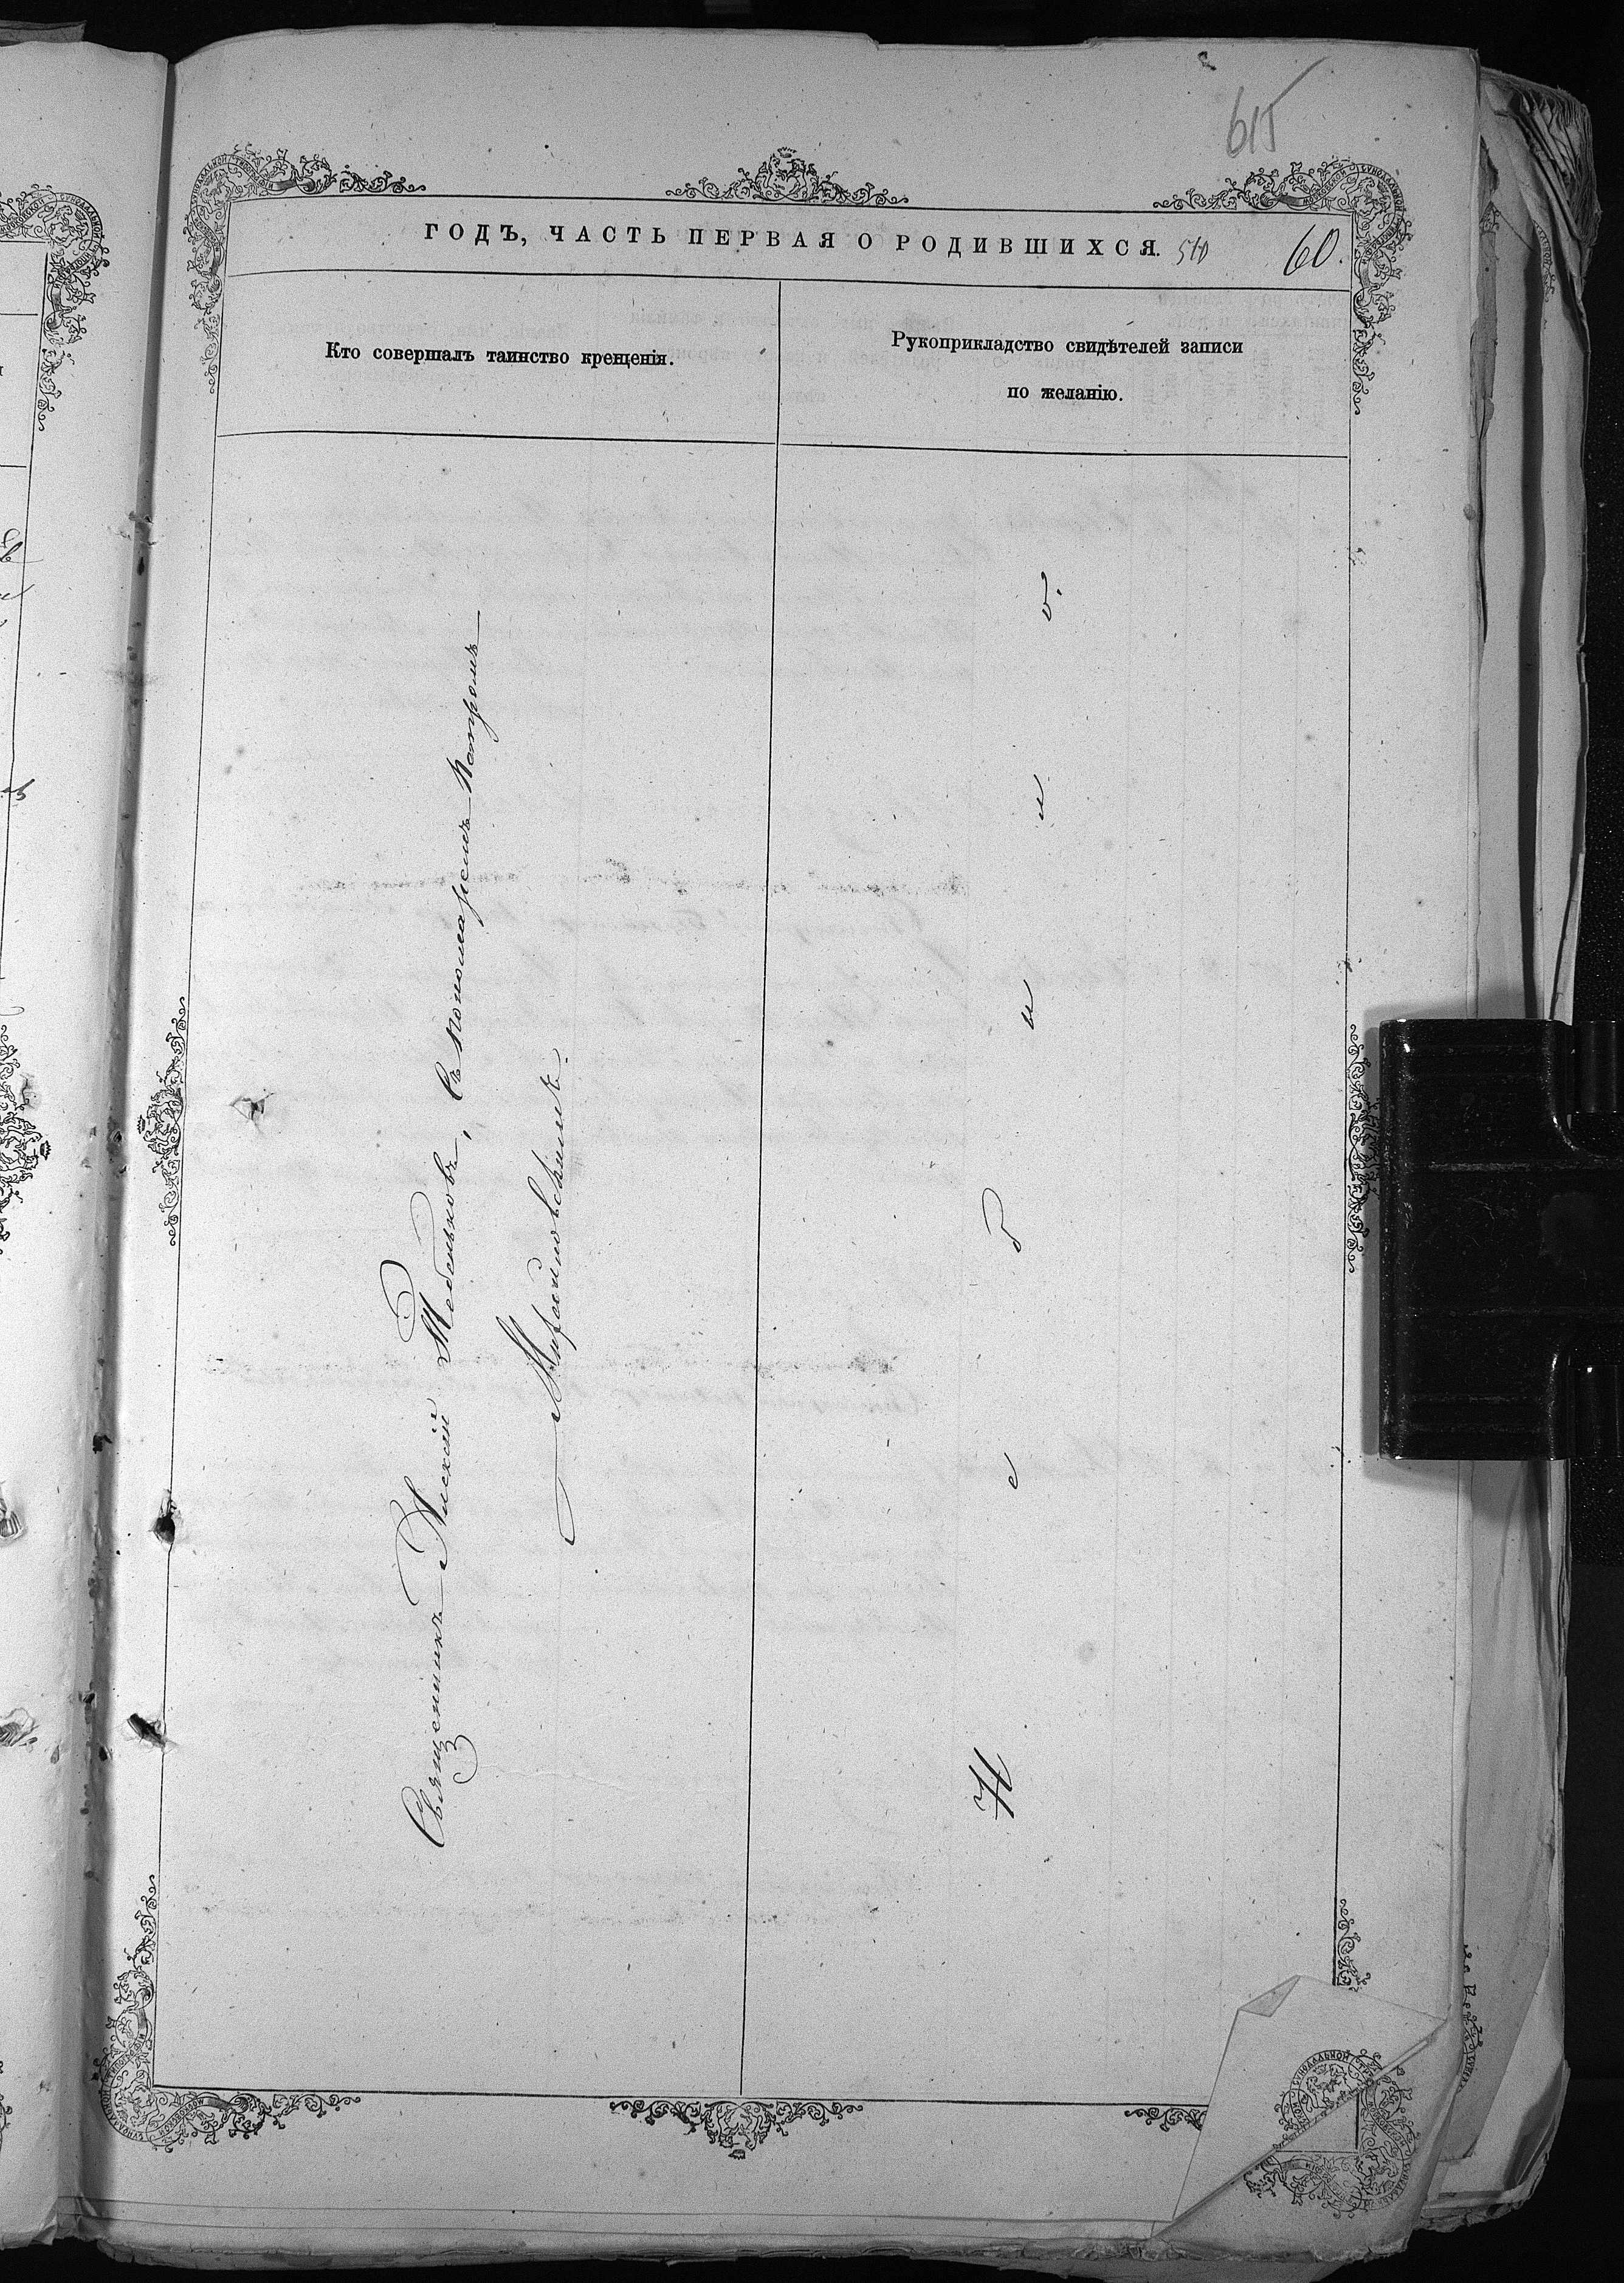 615
ГОДЪ, ЧАСТЬ ПЕРВАЯ О РОДИВШИХСЯ. 510 60.
Кто совершалъ таинство крещенія.
Рукоприкладство свидѣтелей записи
по желанію.
Священникъ Алексій Жебеньковъ, съ пономаремъ Петромъ
Н е б и л о.